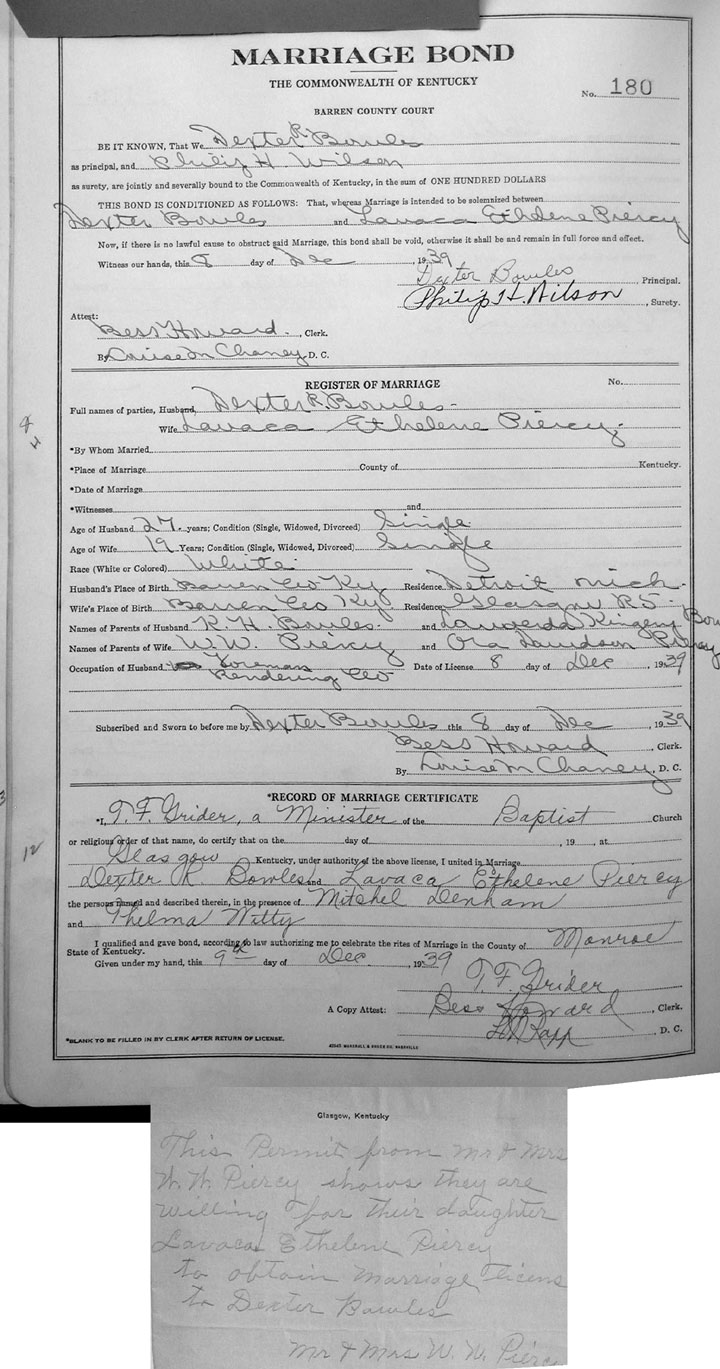 MARRIAGE BOND
THE COMMONWEALTH OF KENTUCKY
No. 180
BARREN COUNTY COURT
BE IT KNOWN, That We Dexter R Bowles
as principal, and Philip H Wilson
as surety, are jointly and severally bound to the Commonwealth of Kentucky, in the sum of ONE HUNDRED DOLLARS
THIS BOND IS CONDITIONED AS FOLLOWS: That, whereas Marriage is intended to be solemnized between
Dexter Bowles and Lavaca Ethelene Piercy
Now, if there is no lawful cause to obstruct said Marriage, this bond shall be void, otherwise it shall be and remain in full force and effect.
Witness our hands, this 8 day of Dec, 1939
Dexter Bowles Principal.
Philip H. Wilson, Surety.
Attest:
Bess Howard., Clerk.
By Louise M Chaney, D. C.
REGISTER OF MARRIAGE No.
Full names of parties, Husband, Dexter R. Bowles-
Wife Lavaca Ethelene Piercy-
*By Whom Married
*Place of Marriage County of Kentucky.
*Date of Marriage
*Witnesses and
Age of Husband 27. years; Condition (Single, Widowed, Divorced) Single
Age of Wife 19 Years; Condition (Single, Widowed, Divorced) Single
Race (White or Colored) White
Husband's Place of Birth Barren Co Ky Residence Detroit Mich-
Wife's Place of Birth Barren Co Ky Residence Glasgow R5-
Names of Parents of Husband K. H. Bowles- and Kingery Bow
Names of Parents of Wife W. W. Piercy and Ora Davidson Piercy
Occupation of Husband Foreman Date of License 8 day of Dec 1939
Rendering Co
Subscribed and Sworn to before me by Dexter Bowles this 8 day of Dec, 1939
Bess Howard, Clerk.
By Louise M Chaney, D. C.
*RECORD OF MARRIAGE CERTIFICATE
*I, T. F. Grider, a Minister of the Baptist Church
or religious order of that name, do certify that on the day of, 19, at
Glasgow Kentucky, under authority of the above license, I united in Marriage
Dexter R. Bowles and Lavaca Ethelene Piercy
the persons named and described therein, in the presence of Mitchel Denham
and Thelma Witty
I qualified and gave bond, according to law authorizing me to celebrate the rites of Marriage in the County of Monroe
State of Kentucky.
Given under my hand, this 9th day of Dec. 1939
T. F. Grider
A Copy Attest: Bess Howard, Clerk.
, D. C.
*BLANK TO BE FILLED IN BY CLERK AFTER RETURN OF LICENSE.
Glasgow, Kentucky
This Permit from Mr & Mrs
W. W. Piercy shows they are
willing for their daughter
Lavaca Ethelene Piercy
to obtain Marriage licens
to Dexter Bowles
Mr & Mrs W. W. Pierc